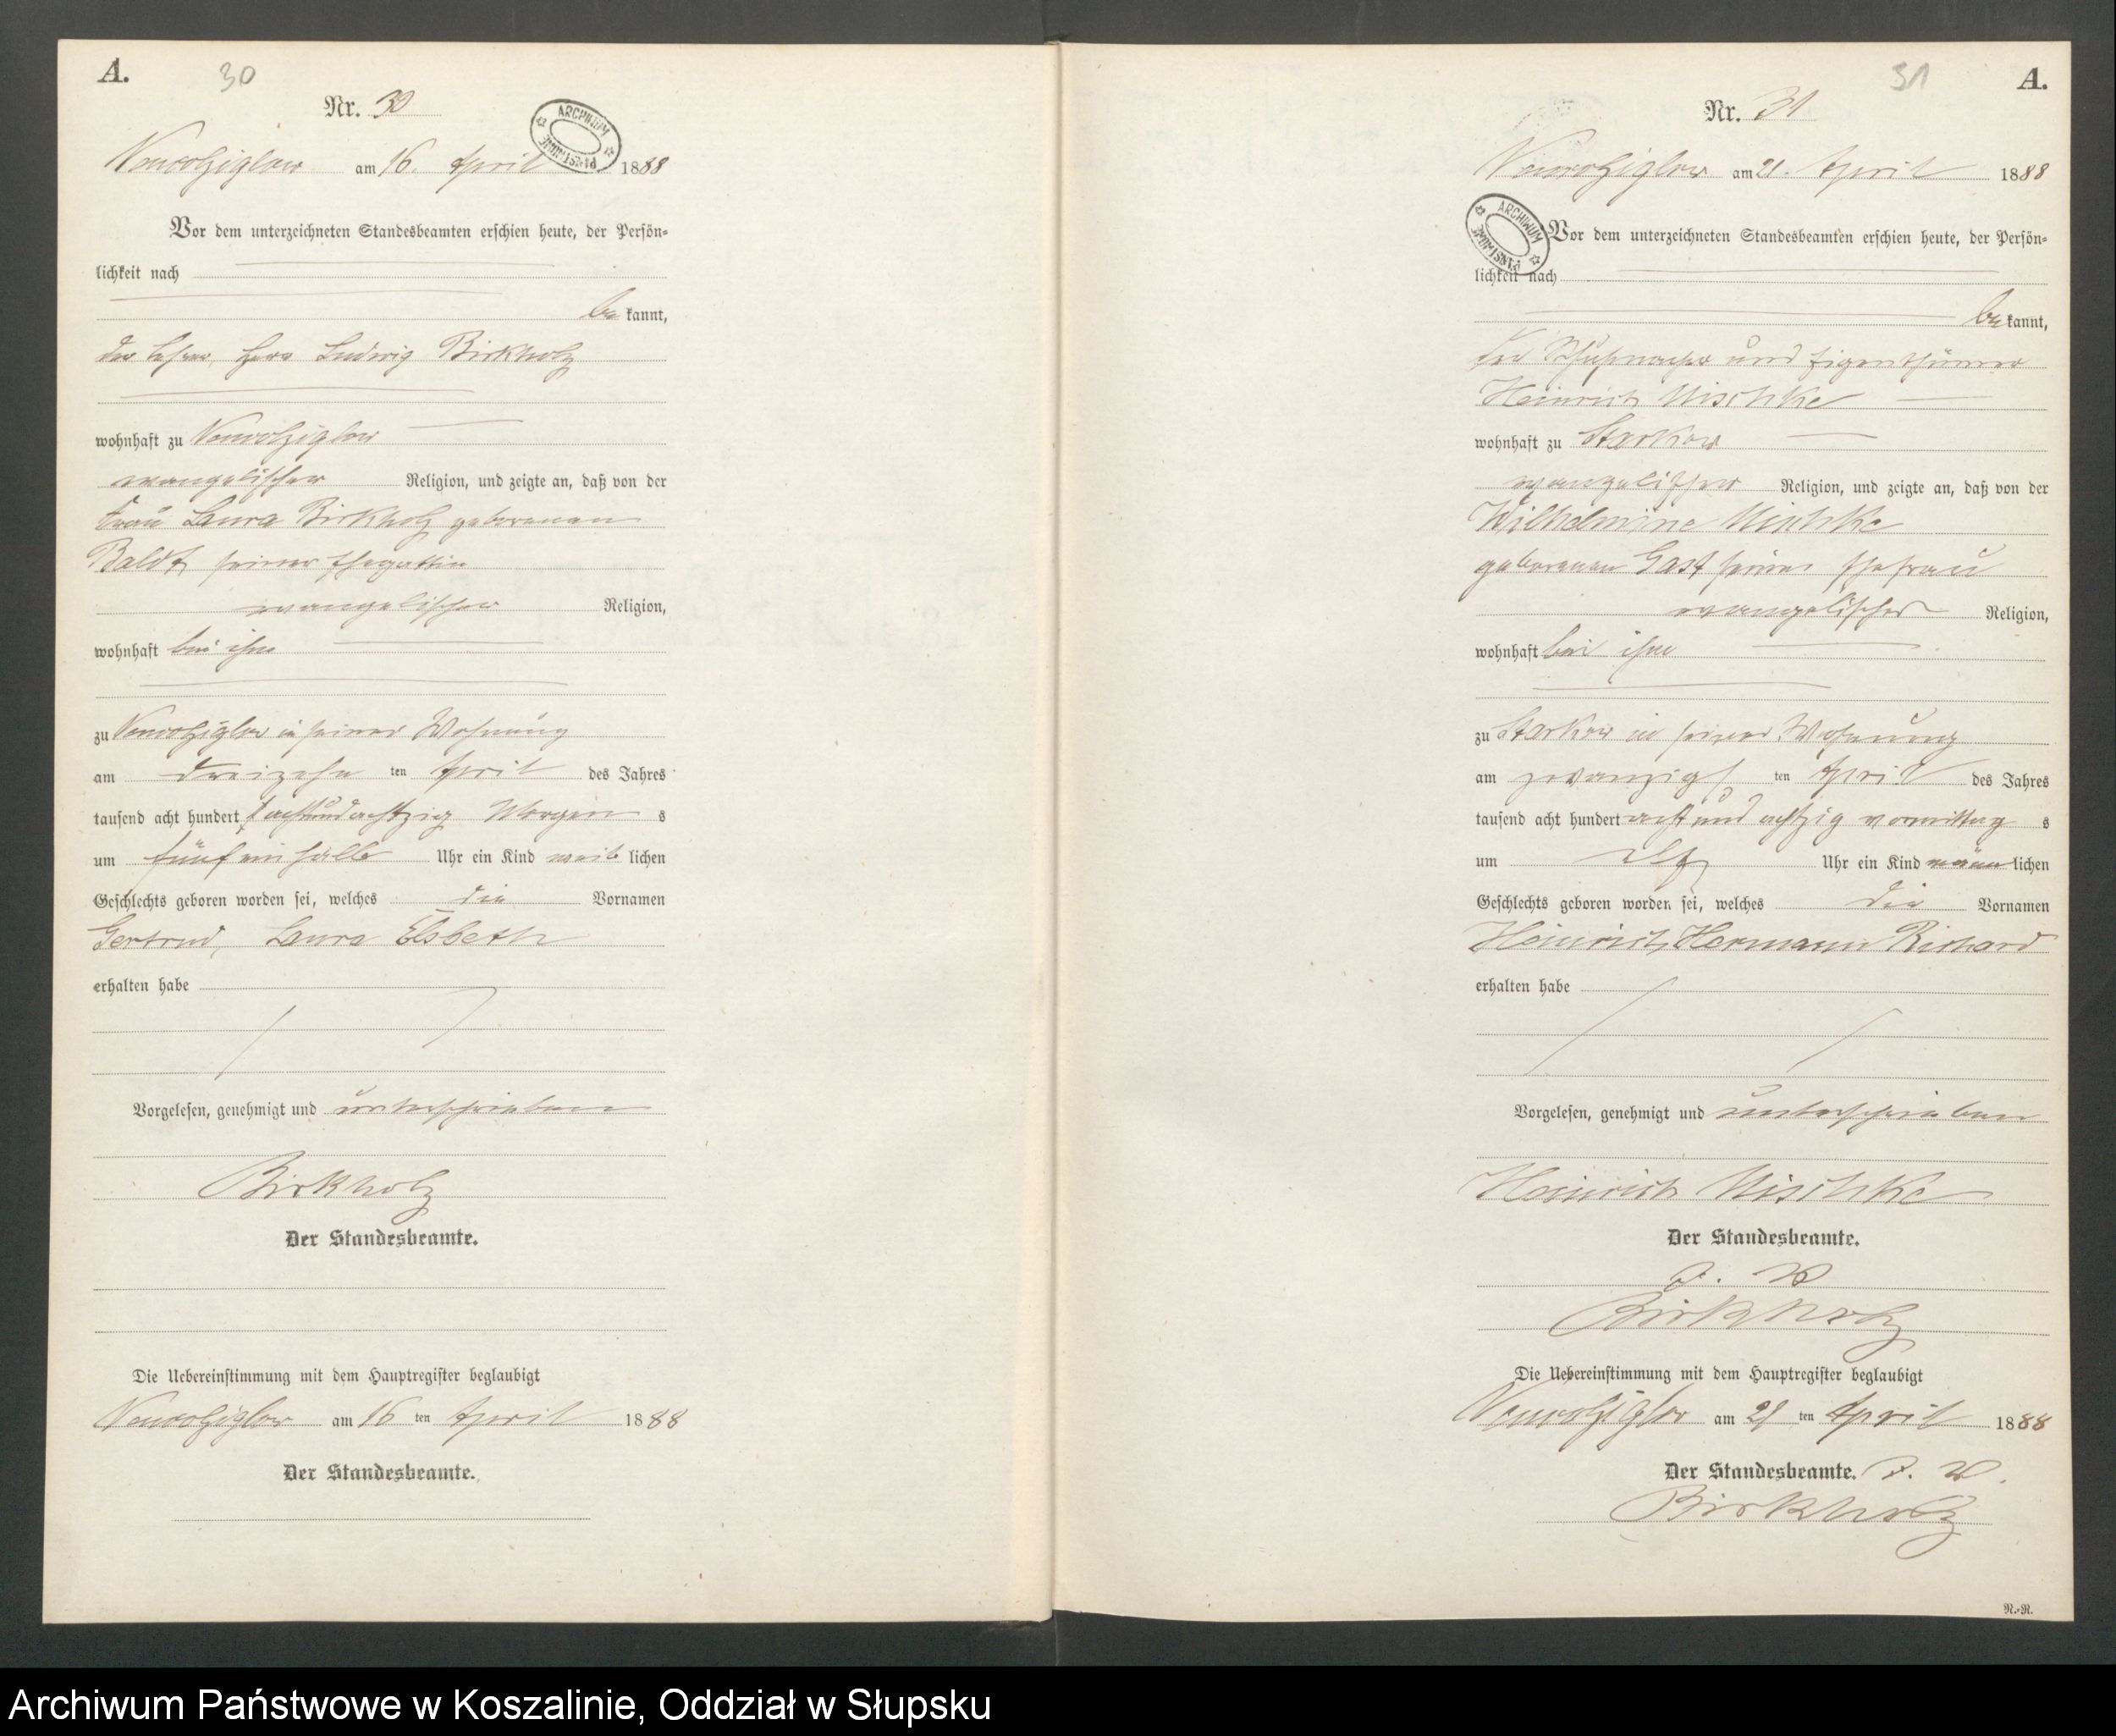 A.
30
Nr. 30
ARCHIWUM PAŃSTWOWE
Neuwolziglow am 16. April 1888
Vor dem unterzeichneten Standesbeamten erschien heute, der Persön-
lichkeit nach
bekannt,
der Lehrer, Herr Ludwig Birkholz
wohnhaft zu Neuwolziglow
evangelischer Religion, und zeigte an, daß von der
Frau Laura Birkholz geborenen
Baldt, seiner Ehegattin
evangelischer Religion,
wohnhaft bei ihm
zu Neuwolziglow in seiner Wohnung
am dreizehn ten April des Jahres
tausend acht hundert achtundachtzig Morgen s
um fünf ein halb Uhr ein Kind weib lichen
Geschlechts geboren worden sei, welches die Vornamen
Gertrud, Laura Elsbeth
erhalten habe
Vorgelesen, genehmigt und unterschrieben
Birkholz
Der Standesbeamte.
Die Uebereinstimmung mit dem Hauptregister beglaubigt
Neuwolziglow am 16 ten April 1888
Der Standesbeamte.
31
A.
Nr. 31
Neuwolziglow am 21. April 1888
ARCHIWUM PAŃSTWOWE
Vor dem unterzeichneten Standesbeamten erschien heute, der Persön-
lichkeit nach
bekannt,
der Schuhmacher und Eigenthümer
Heinrich Mischke
wohnhaft zu Starkow
evangelischer Religion, und zeigte an, daß von der
Wilhelmine Mischke
geborenen Gast seiner Ehefrau
evangelischer Religion,
wohnhaft bei ihm
zu Starkow in seiner Wohnung
am zwanzigs ten April des Jahres
tausend acht hundert acht und achtzig vormittag s
um elf Uhr ein Kind männ lichen
Geschlechts geboren worden sei, welches die Vornamen
Heinrich, Hermann Richard
erhalten habe
Vorgelesen, genehmigt und unterschrieben
Heinrich Mischke
Der Standesbeamte.
J. V.
Birkholz
Die Uebereinstimmung mit dem Hauptregister beglaubigt
Neuwolziglow am 21 ten April 1888
Der Standesbeamte. J. V.
Birkholz
N.-R.
Archiwum Państwowe w Koszalinie, Oddział w Słupsku